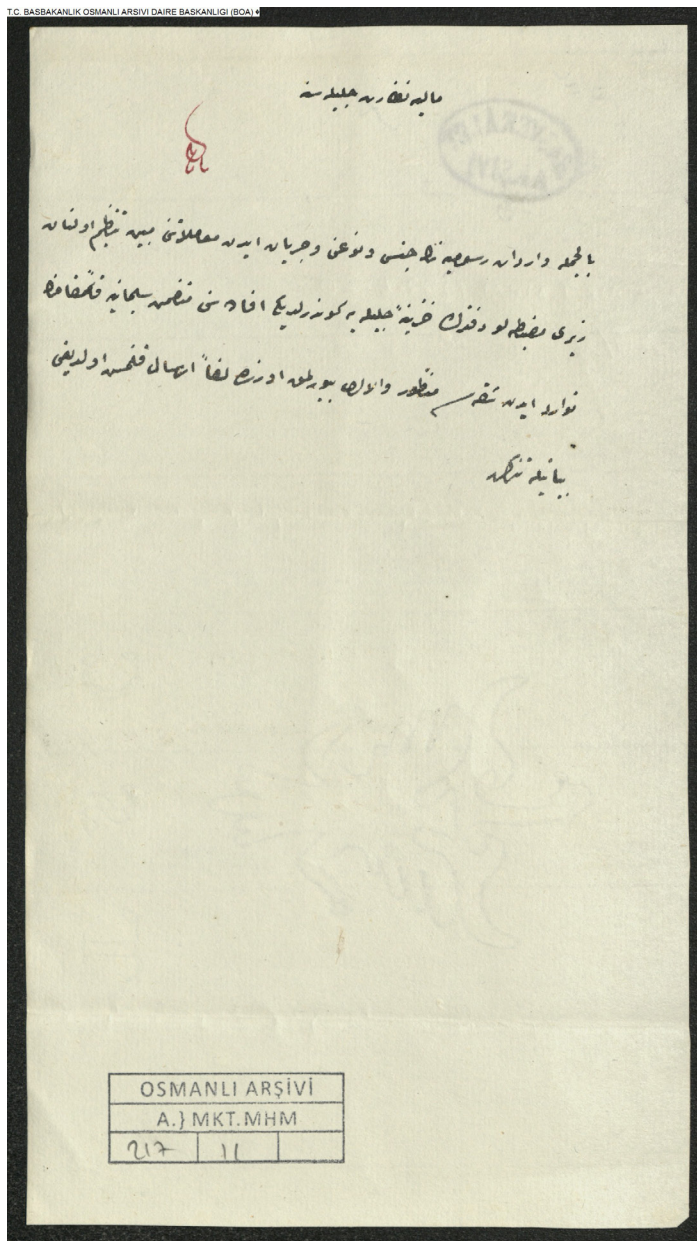 T.C. BASBAKANLIK OSMANLI ARSIVI DAIRE BASKANLIGI (BOA)
ماليه نظارت جليله سنه
بالجمله واردات رسوميه نك جنس و نوعنى و جريان ايدن معاملاتنى مبين تنظيم اولنان
زيرى مضبطه لو دفترك خزينۀ جليله يه كوندرلديكى افاده سنى متضمن سليمانيه قائممقاملغندن
توارد ايدن شقه منظور والالرى بيورلمق اوزره لفاً ارسال قلنمش اولديغى
بيانيله تذكره
OSMANLI ARŞİVİ
A.} MKT.MHM
217 11